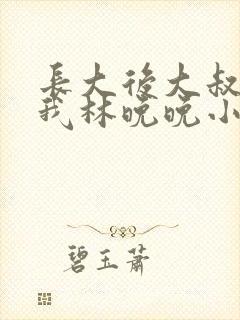 長大後大叔
我林晚晚小
碧玉蕭